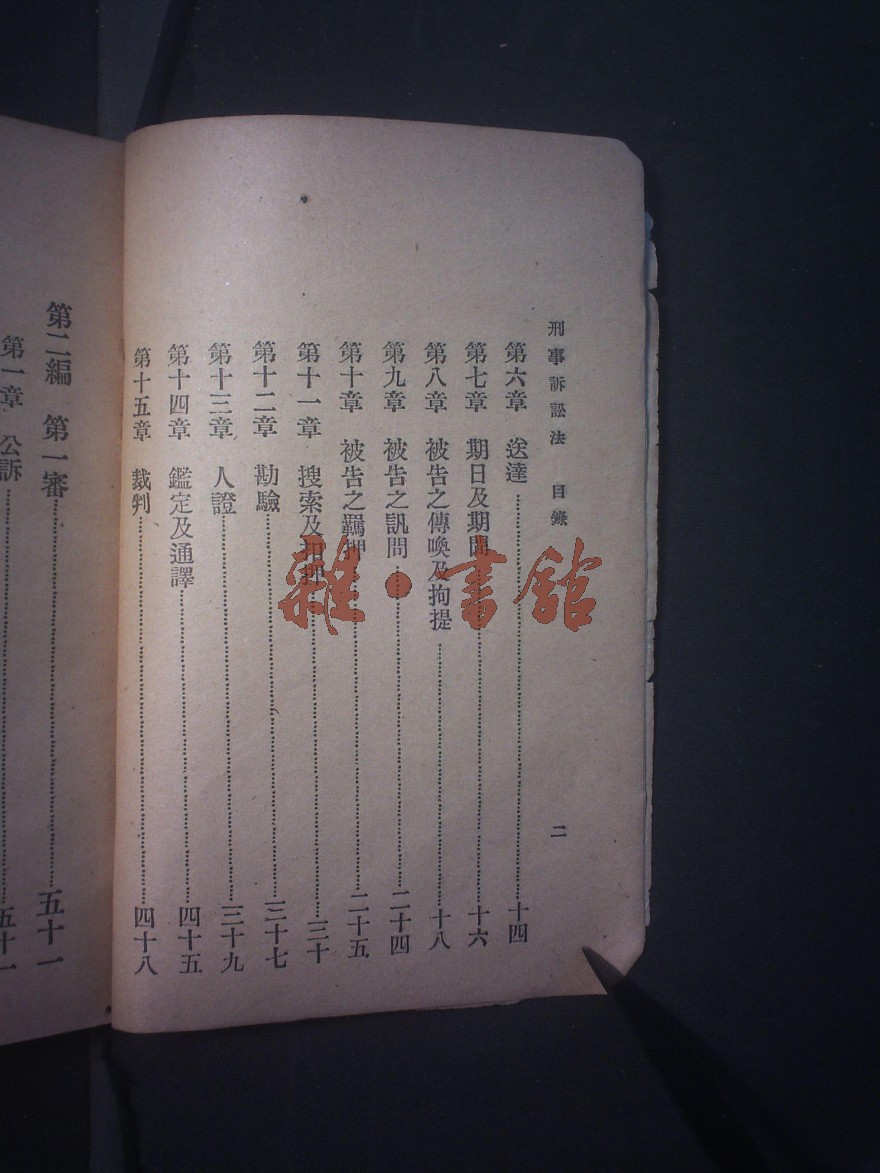 刑事訴訟法 目錄 二
第六章 送達 十四
第七章 期日及期間 十六
第八章 被告之傳喚及拘提 十八
第九章 被告之訊問 二十四
第十章 被告之羈押 二十五
第十一章 搜索及扣押 三十
第十二章 勘驗 三十七
第十三章 人證 三十九
第十四章 鑑定及通譯 四十五
第十五章 裁判 四十八
第二編 第一審 五十一
第一章 公訴 五十一
雜·書館